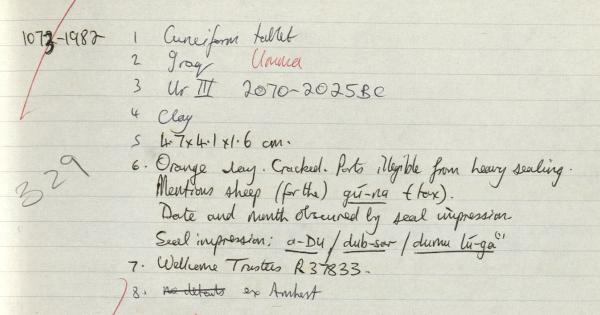 1073-1982 1 Cuneiform tablet
2 Iraq Umma
3 Ur III 2070-2025BC
4 Clay
5 4.7x4.1x1.6 cm.
6. Orange clay. Cracked. Parts illegible from heavy sealing.
Mentions sheep (for the) gú-na (tax).
Date and month obscured by seal impression
Seal impression: a-DU / dub-sar / dumu lú-ga
7. Wellcome Trustees R37833.
8. no details ex Amherst
329